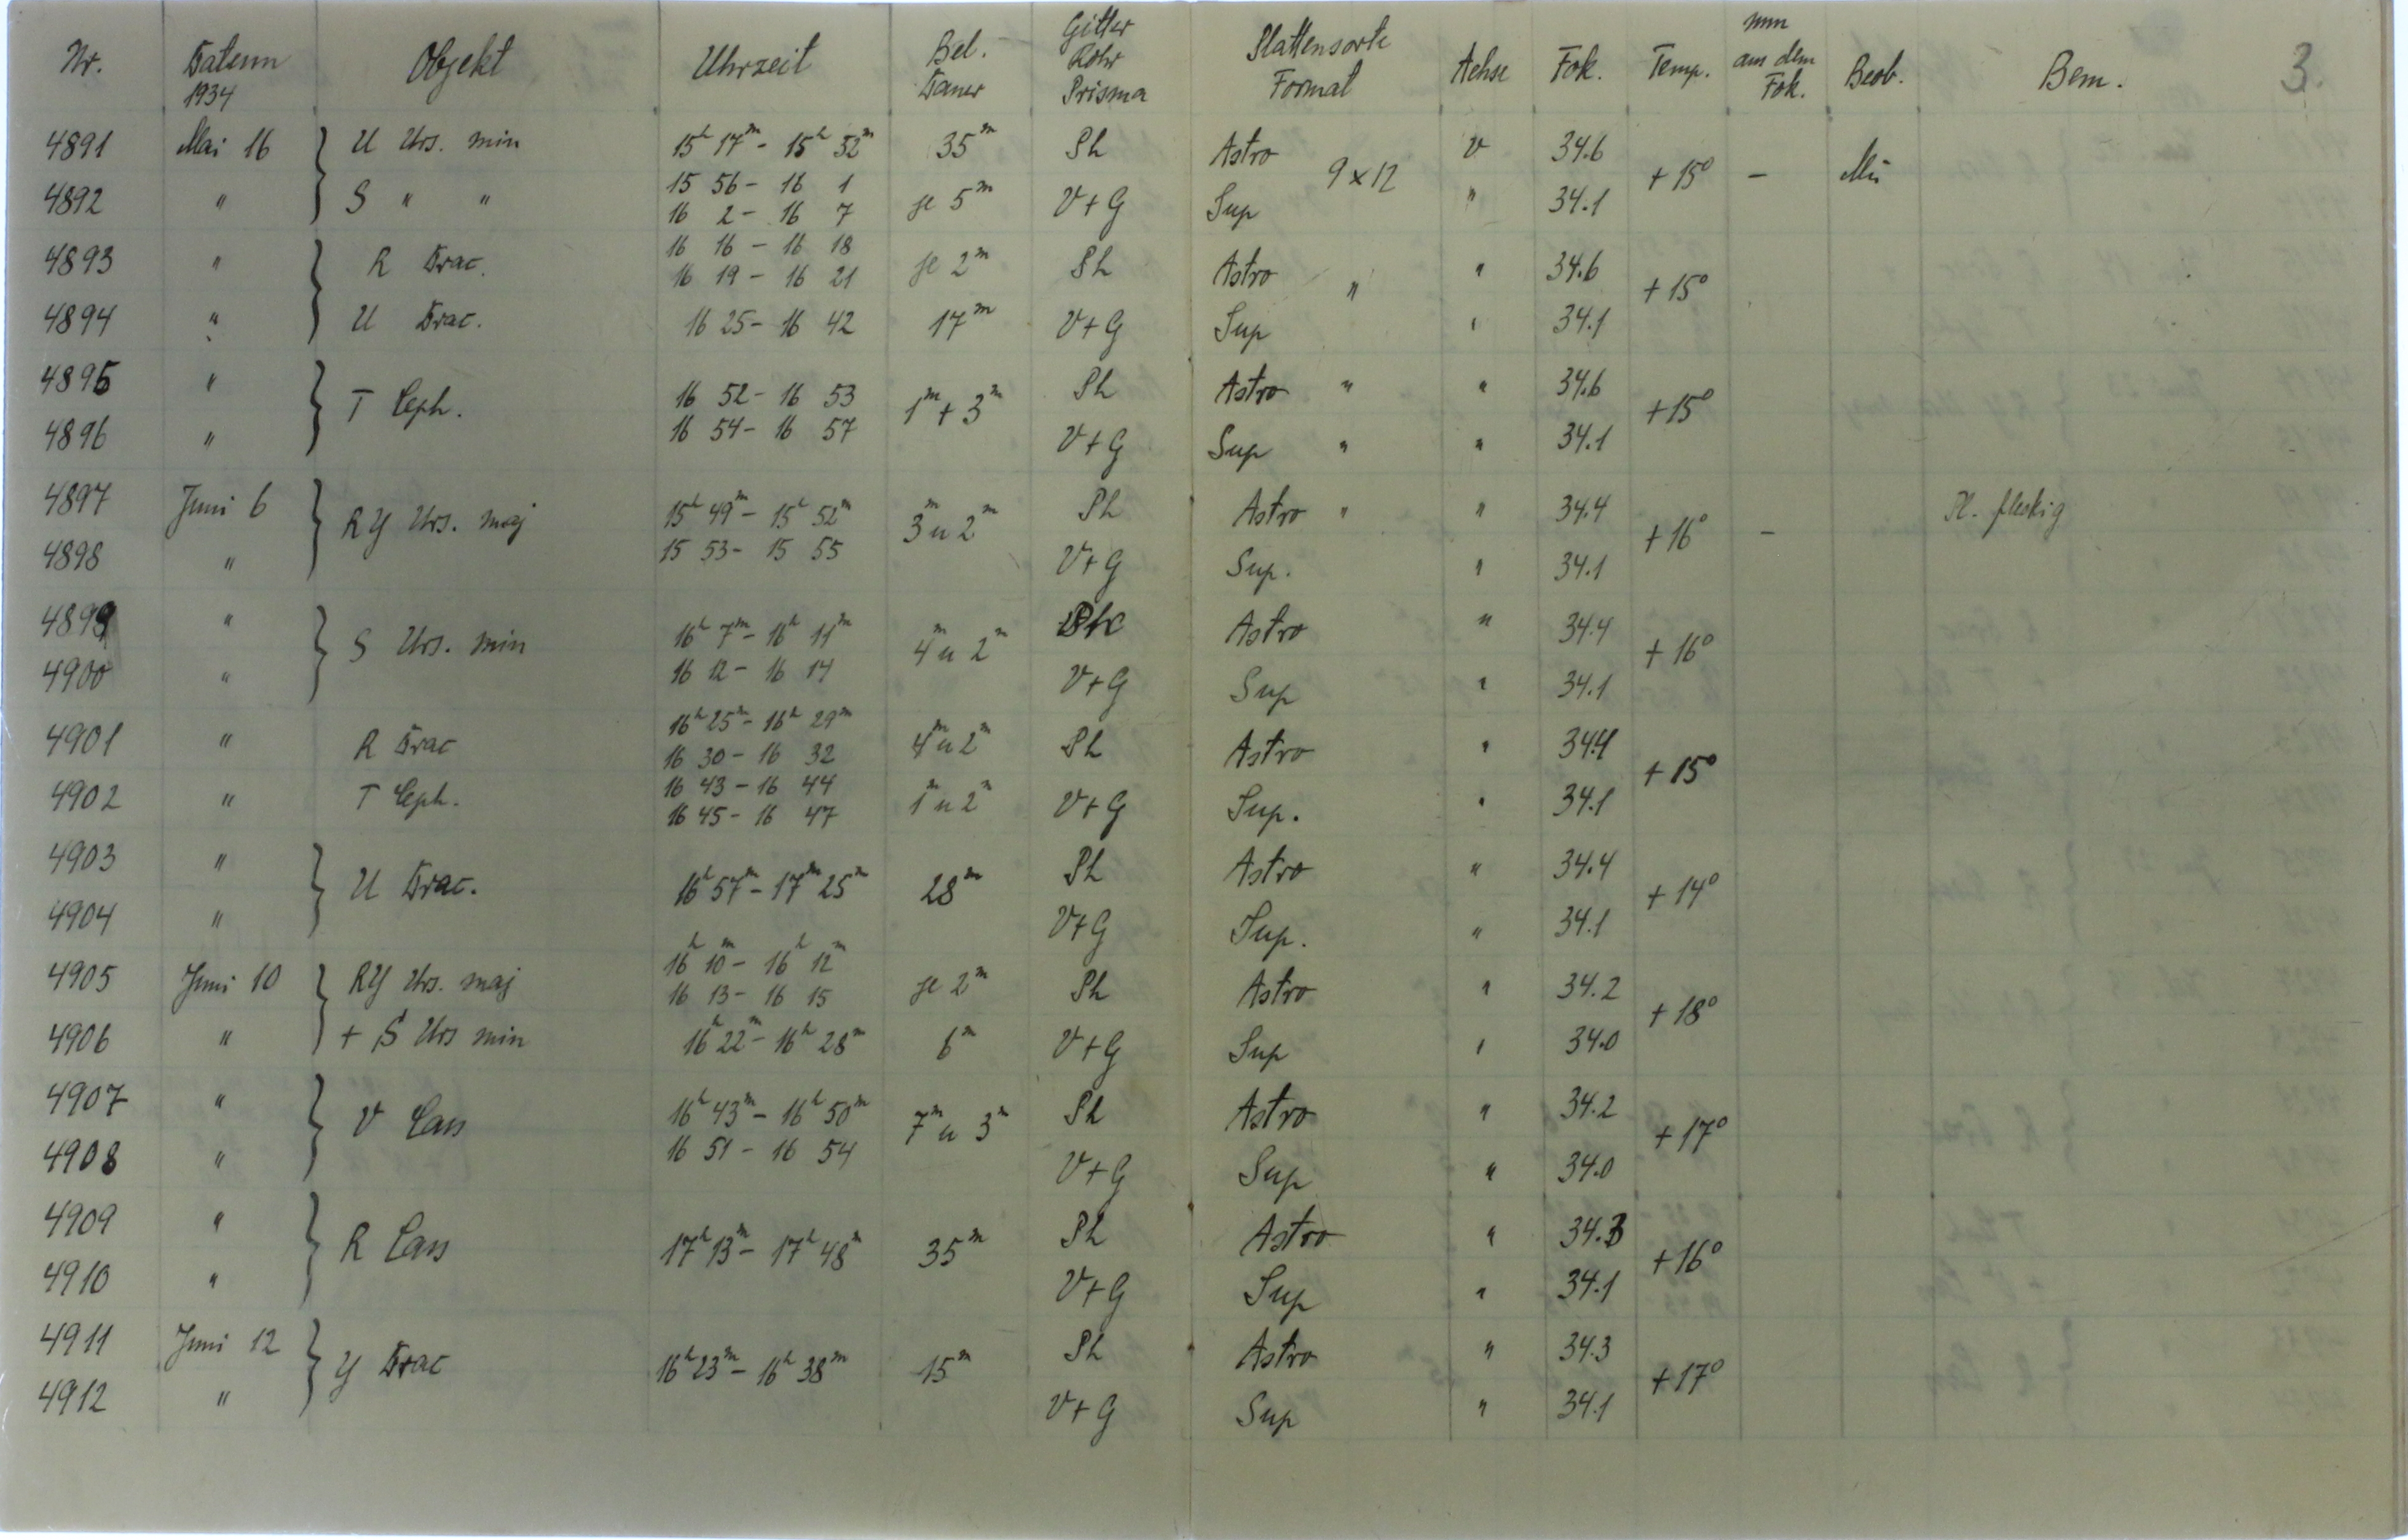 Nr. Datum 1934 Objekt Uhrzeit Bel. Dauer Gitter Rohr Prisma Plattensorte Format Achse Fok. Temp. mm aus dem Fok. Beob. Bem. 3.
4891 Mai 16 } U Urs. min 15h 17m - 15h 52m 35m Ph Astro 9x12 V 34.6 +15° - Mü
4892 " S " " 15 56 - 16 1 je 5m V+G Sup " 34.1
16 2 - 16 7
4893 " } R Drac. 16 16 - 16 18 je 2m Ph Astro " " 34.6 +15°
16 19 - 16 21
4894 " U Drac. 16 25 - 16 42 17m V+G Sup " 34.1
4895 " } T Ceph. 16 52 - 16 53 1m + 3m Ph Astro " " 34.6 +15°
4896 " 16 54 - 16 57 V+G Sup " " 34.1
4897 Juni 6 } RY Urs. maj 15h 49m - 15h 52m 3m u 2m Ph Astro " " 34.4 +16° - Pl. fleckig
4898 " 15 53 - 15 55 V+G Sup. " 34.1
4899 " } S Urs. min 16h 7m - 16h 11m 4m u 2m Ph Astro " 34.4 +16°
4900 " 16 12 - 16 14 V+G Sup " 34.1
4901 " R Drac 16h 25m - 16h 29m 4m u 2m Ph Astro " 34.4 +15°
16 30 - 16 32
4902 " T Ceph. 16 43 - 16 44 1m u 2m V+G Sup. " 34.1
16 45 - 16 47
4903 " } U Drac. 16h 57m - 17m 25m 28m Ph Astro " 34.4 +14°
4904 " V+G Sup. " 34.1
4905 Juni 10 } RY Urs. maj 16h 10m - 16h 12m je 2m Ph Astro " 34.2 +18°
16 13 - 16 15
4906 " + S Urs min 16h 22m - 16h 28m 6m V+G Sup " 34.0
4907 " } V Cass 16h 43m - 16h 50m 7m u 3m Ph Astro " 34.2 +17°
4908 " 16 51 - 16 54 V+G Sup " 34.0
4909 " } R Cass 17h 13m - 17h 48m 35m Ph Astro " 34.3 +16°
4910 " V+G Sup " 34.1
4911 Juni 12 } Y Drac 16h 23m - 16h 38m 15m Ph Astro " 34.3 +17°
4912 " V+G Sup " 34.1